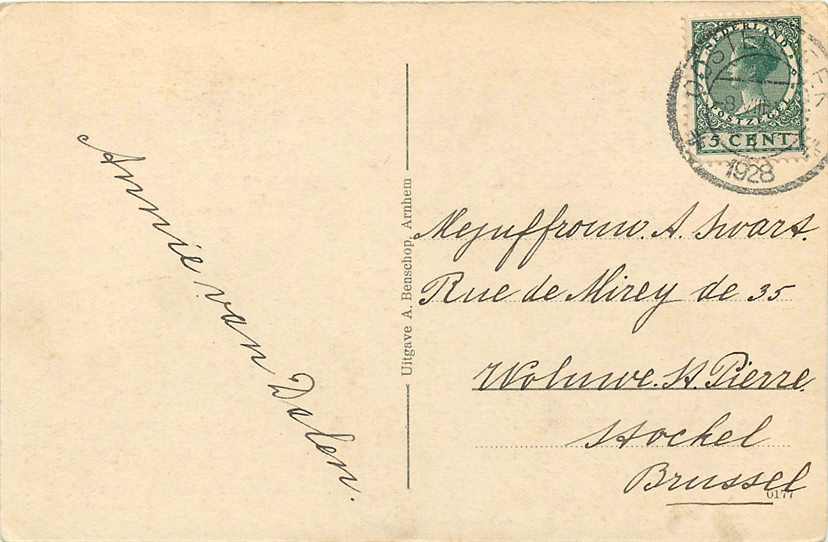 NEDERLAND
POSTZEGEL
5 CENT
OOSTERBEEK
1928
Annie van Dalen.
Uitgave A. Benschop, Arnhem
Mejuffrouw. A. Swart.
Rue de Mirey de 35
Woluwe. St. Pierre.
Stockel
Brussel
0177